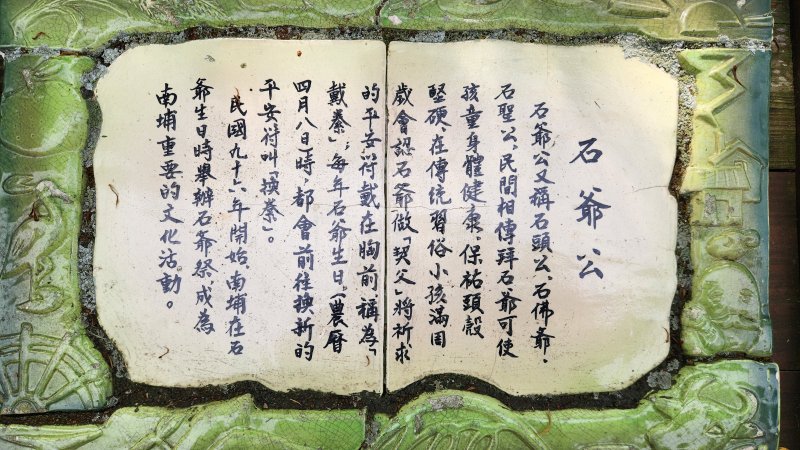 石爺公
石爺公又稱石頭公、石佛爺、
石聖公,民間相傳拜石爺可使
孩童身體健康,保祐頭殼
堅硬,在傳統習俗小孩滿周
歲會認石爺做「契父」將祈求
的平安符戴在胸前稱為「
戴豢」;每年石爺生日(農曆
四月八日)時,都會前往換新的
平安符叫「換豢」。
民國九十六年開始,南埔在石
爺生日時舉辦石爺祭,成為
南埔重要的文化活動。